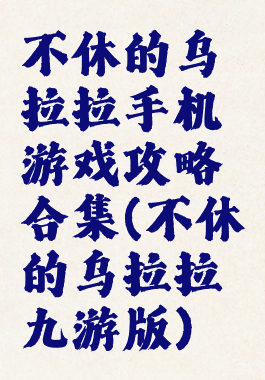 不休的乌
拉拉手机
游戏攻略
合集(不休
的乌拉拉
九游版)